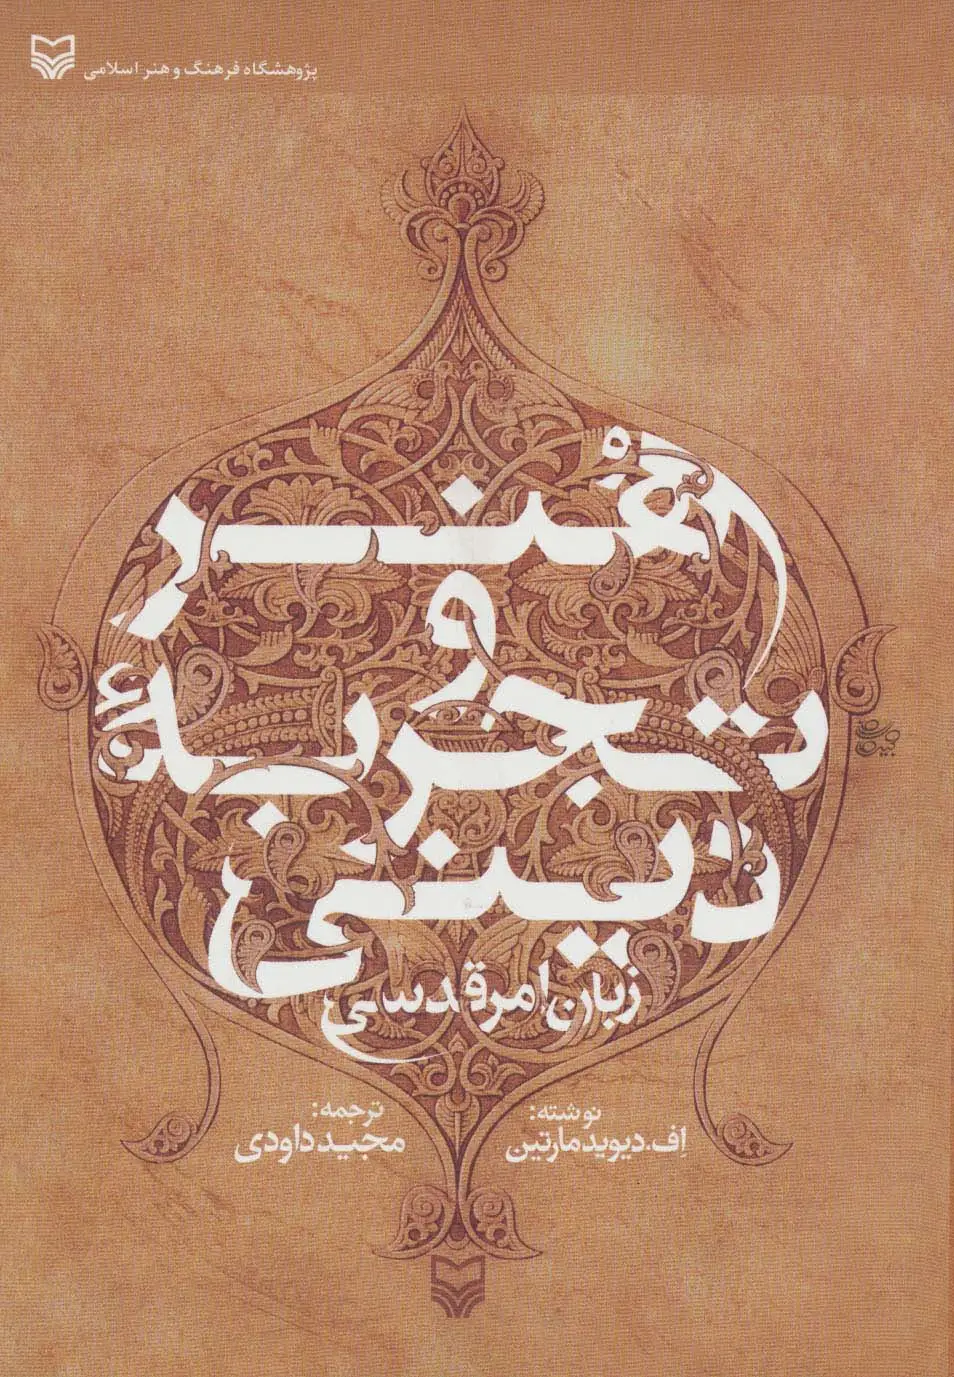 پژوهشگاه فرهنگ و هنر اسلامی
هنر
و
تجربهٔ
دینی
زبان امر قدسی
نوشته:
اِف. دیوید مارتین
ترجمه:
مجید داودی